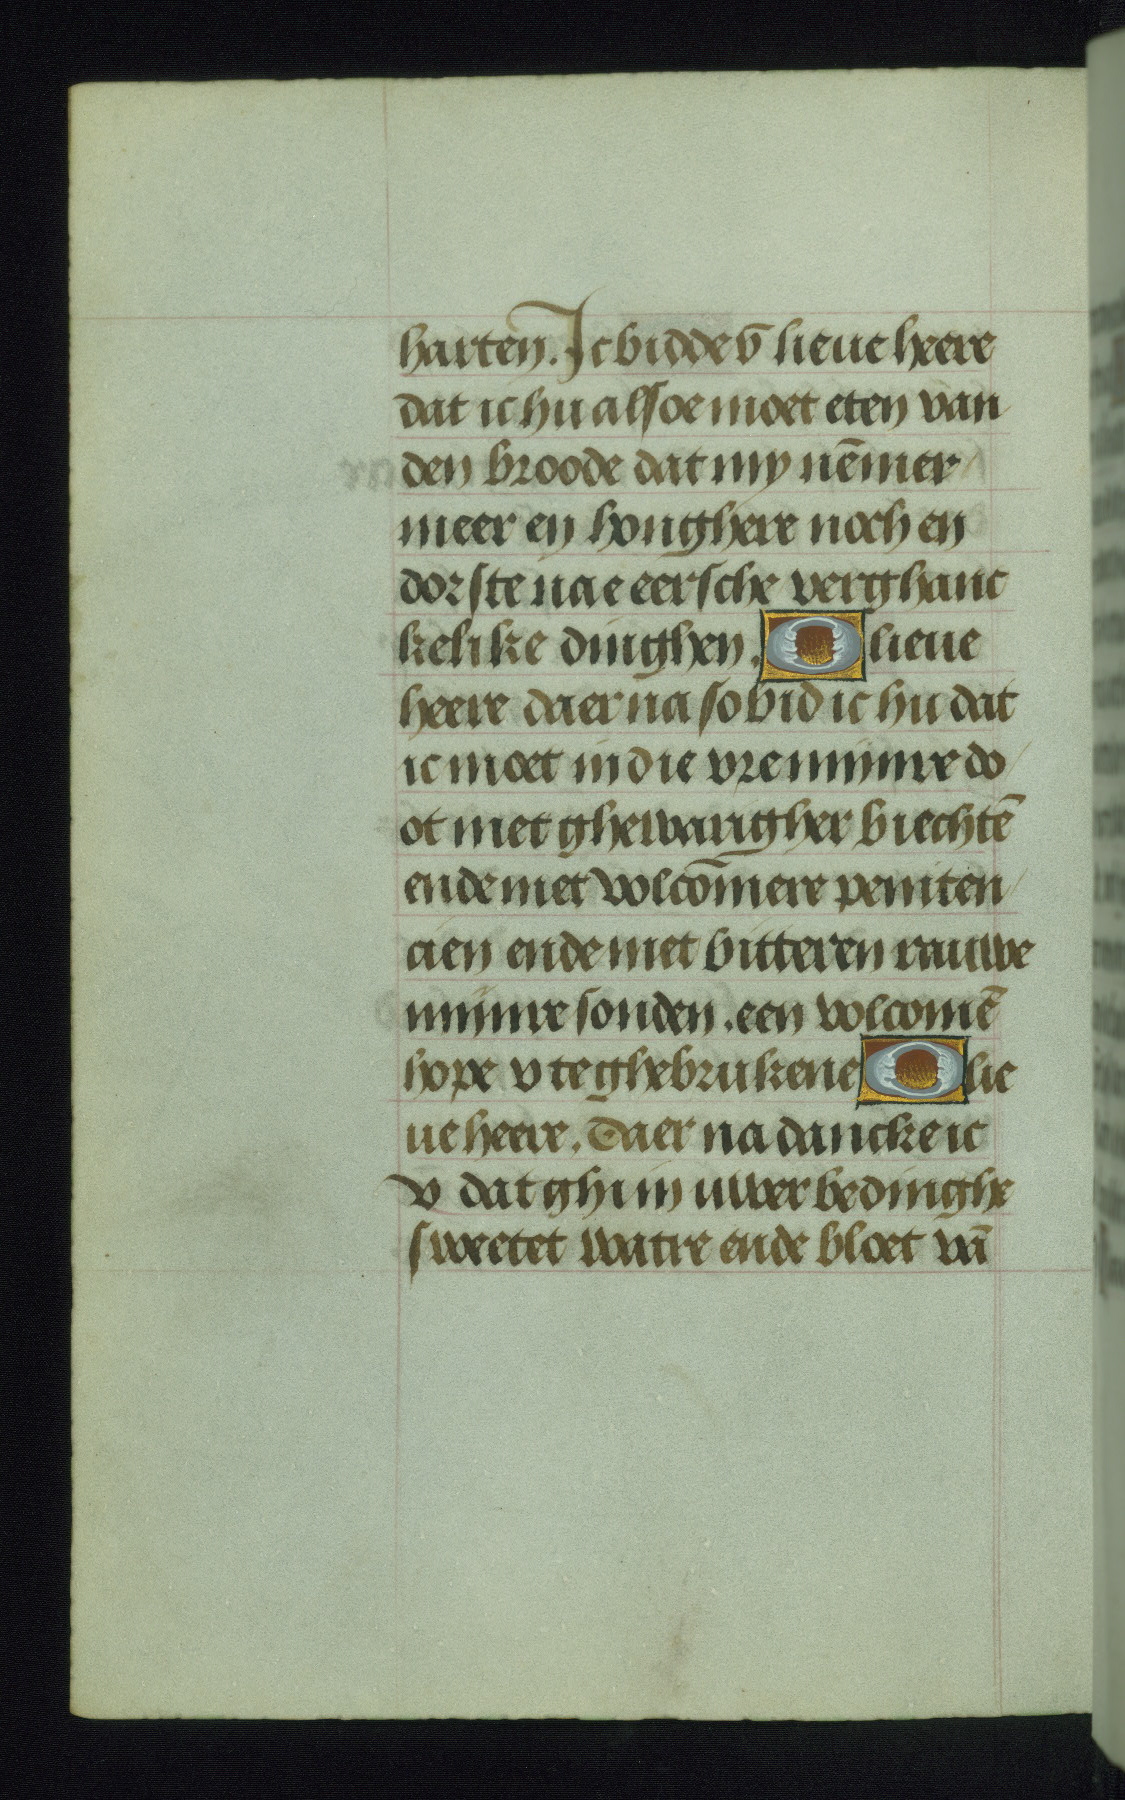 harten. Ic bidde v̄ lieue heere
dat ic hu alsoe moet eten van
den broode dat my nēmer
meer en honghere noch en
dorste na e eersche verghanc
kelike dinghen. O lieue
heere daer na so bid ic hu dat
ic moet in die vre mijnre do
ot met ghewarigher biechtē
ende met volcōmere peniten
cien ende met bitteren rauwe
mijnre sonden. een volcomē
hope v te ghebrukene O lie
ue heere. Daer na dancke ic
v dat ghi in uwer bedinghe
sweetet watre ende bloet vā